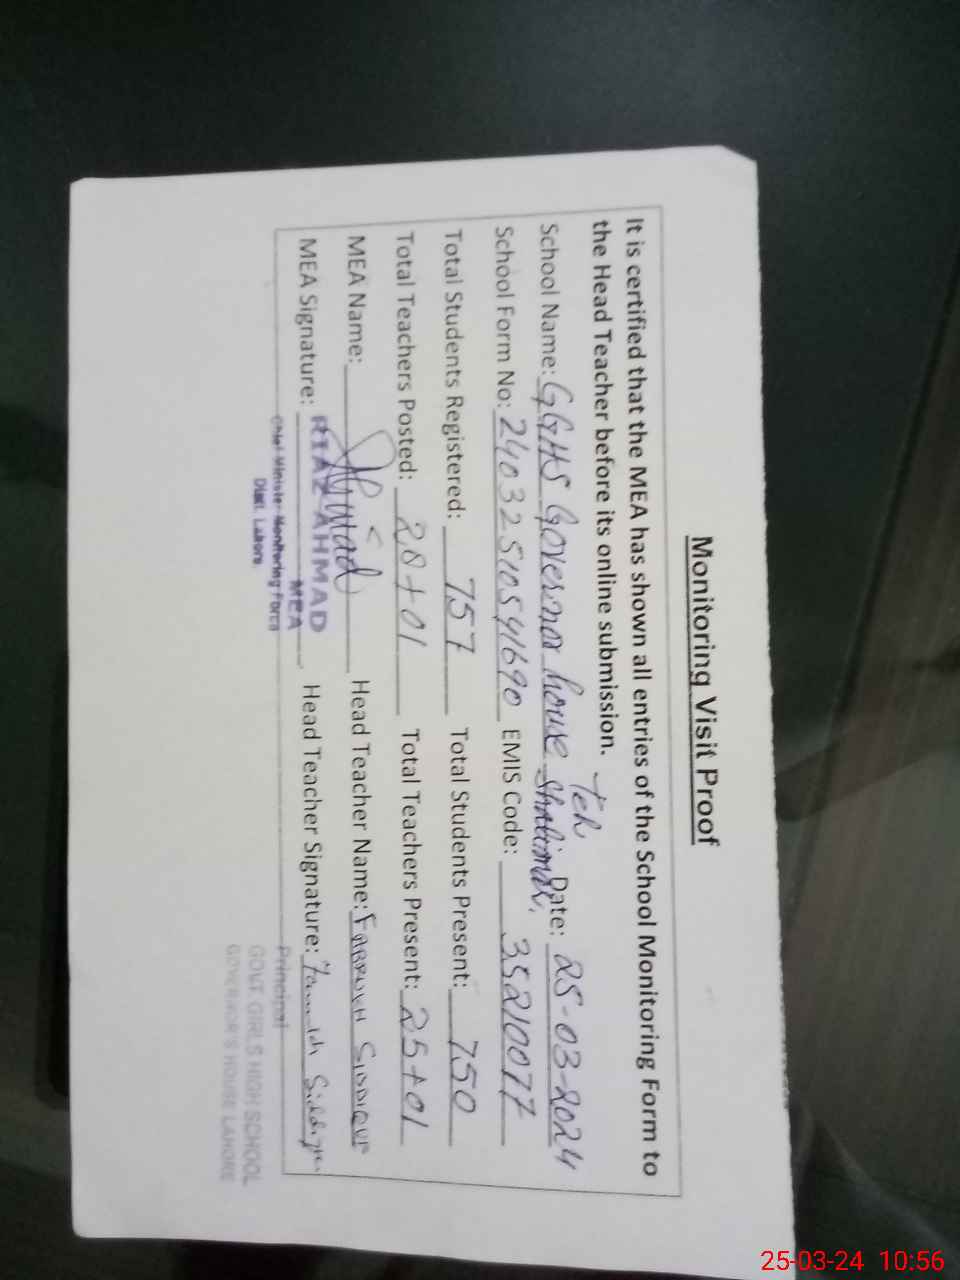 Monitoring Visit Proof
It is certified that the MEA has shown all entries of the School Monitoring Form to
the Head Teacher before its online submission.
School Name: GGHS Governor house Teh Shalimar, Date: 25-03-2024
School Form No: 24032510541690 EMIS Code: 35210077
Total Students Registered: 757 Total Students Present: 750
Total Teachers Posted: 28+01 Total Teachers Present: 25+01
MEA Name: Head Teacher Name: FARRUKH SIDDIQUI
MEA Signature: Head Teacher Signature: Farrukh Siddiqui
RIAZ AHMAD
MEA
Chief Minister Monitoring Force
Distt. Lahore
Principal
GOVT. GIRLS HIGH SCHOOL
GOVERNOR'S HOUSE LAHORE
25-03-24 10:56